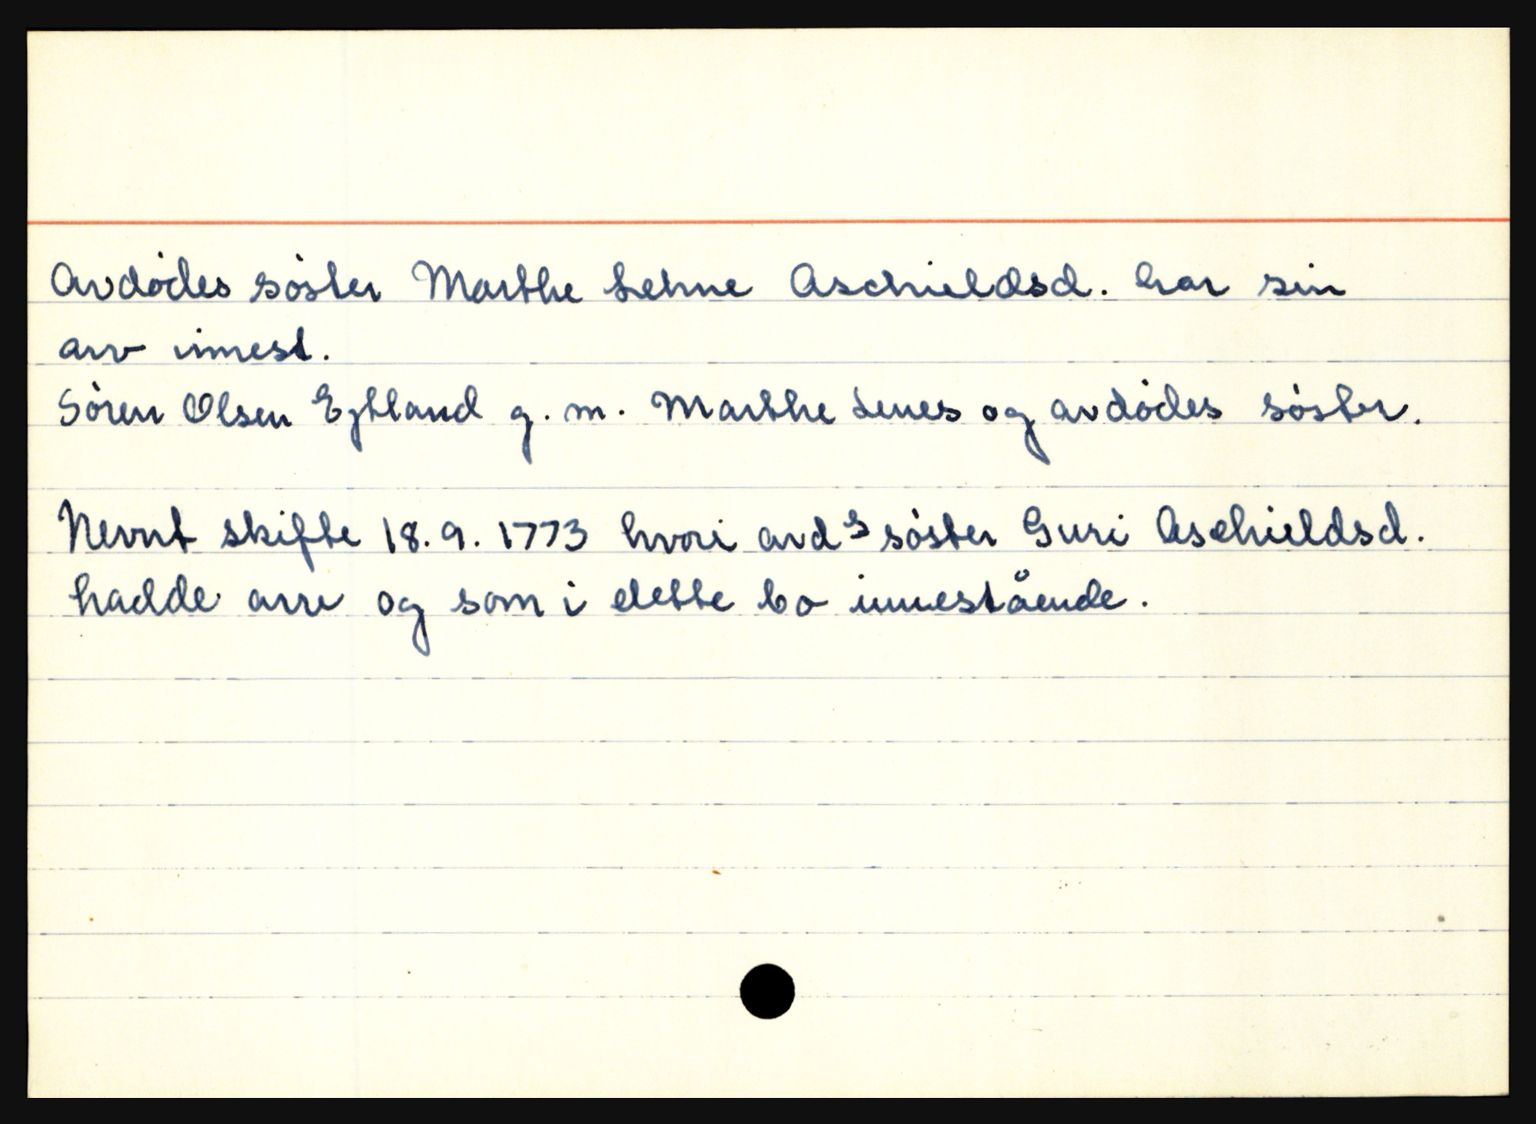 Avdødes søster Marthe Lehne Aschieldsd. har sin
arv innest.
Søren Olsen Eytland g. m. Marthe Lenes og avdødes søster.
Nevnt skifte 18.9.1773 hvori avds søster Guri Aschieldsd.
hadde arv og som i dette bo innestående.